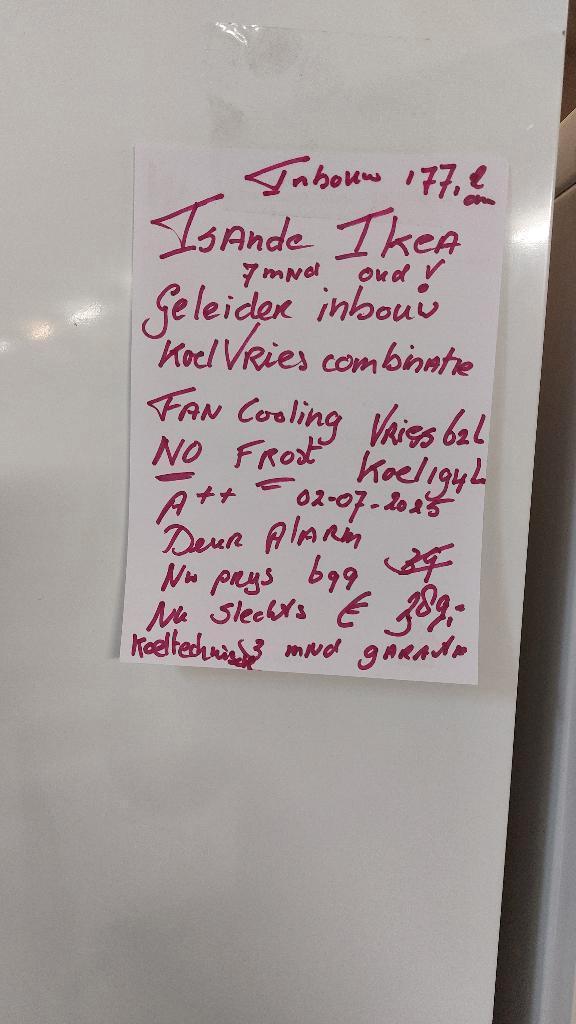 Inbouw 177,2 cm
Isande Ikea
7 mnd oud!
Geleider inbouw
Koel Vries combinatie
FAN Cooling Vries 62L
NO FRost Koel 194L
A++ 02-07-2025
Deur AlARM
Nw prys 699
Nu slechts € 389,-
Koeltechnisch 3 mnd gARANtie